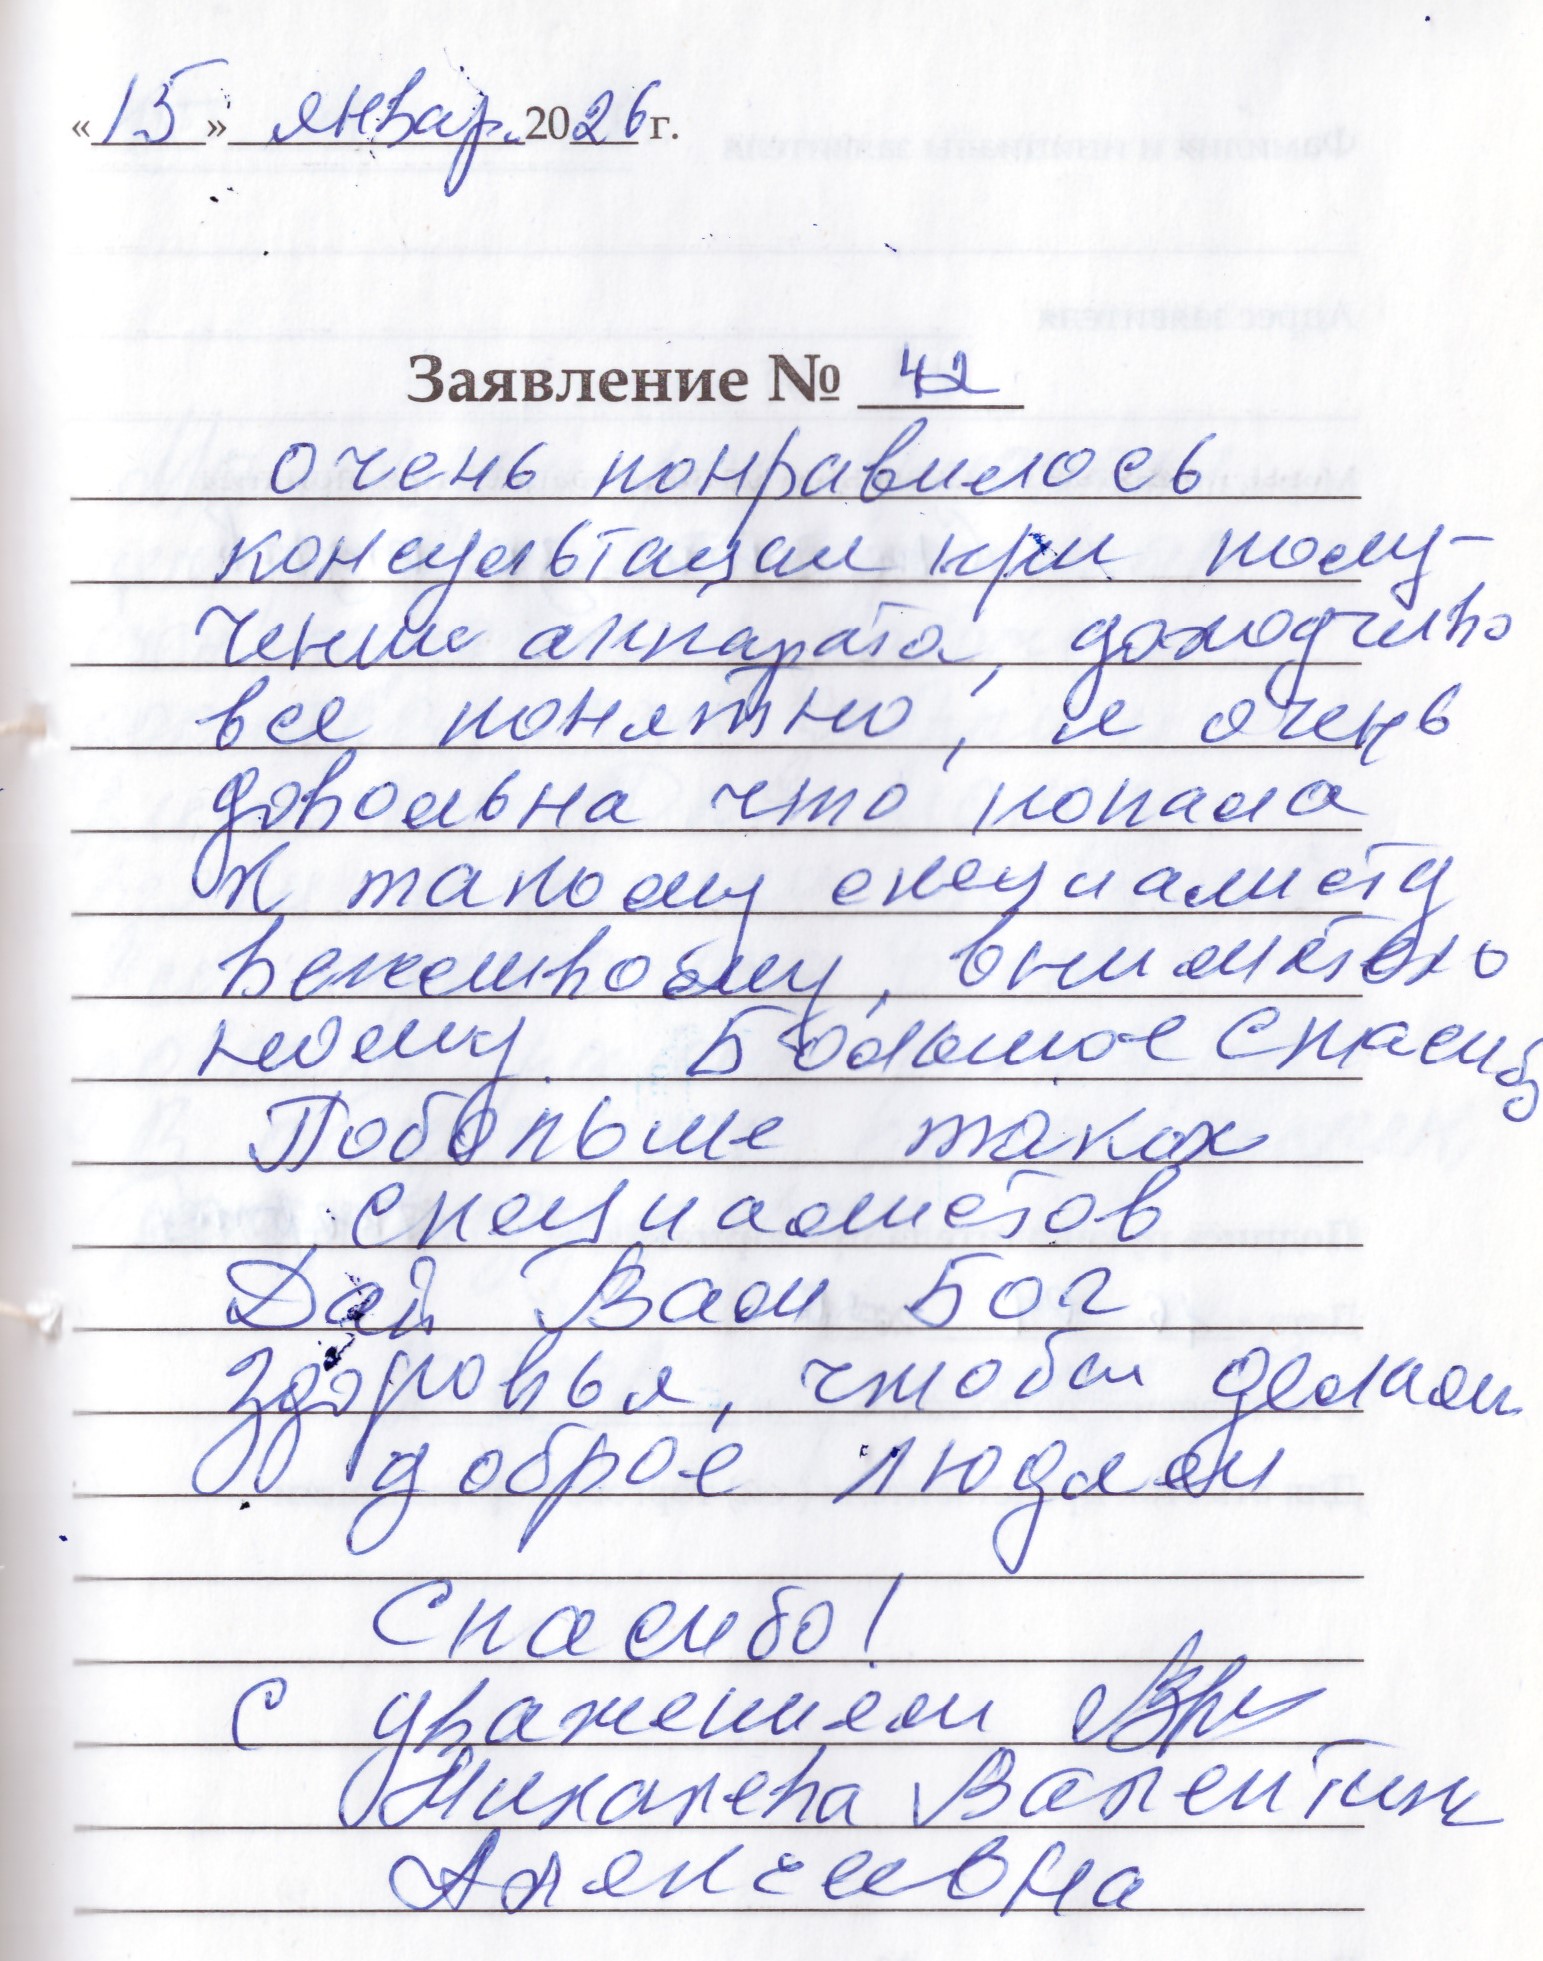 «15» январ. 2026 г.
Заявление № 42
очень понравилось
консультации при полу-
чении аппарата, доходчиво
все понятно, и очень
довольна что попала
к такому специалисту
вежливому, вниматель
ному. Большое Спасибо
Побольше таких
специалистов
Дай Вам Бог
здоровья, чтобы делали
доброе людям
Спасибо!
С уважением
Михалева Валентин
Алексеевна